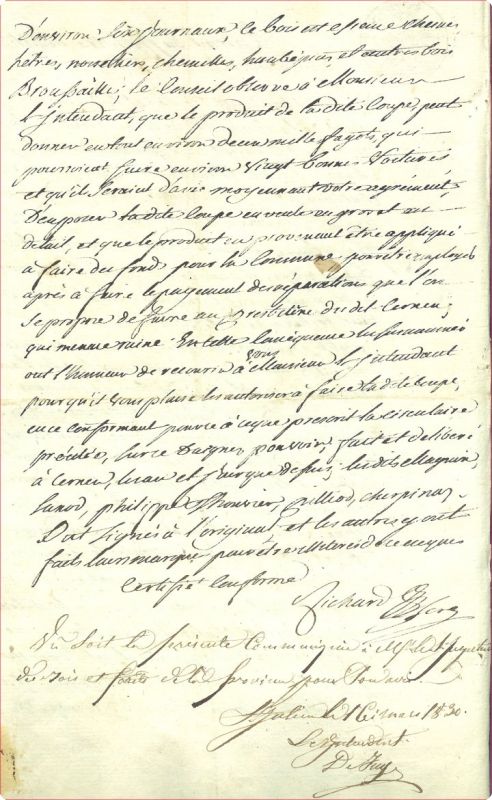 D'environ six journaux, le bois est essence chênes
hêtres, noisetiers, chenilles, et autres bois
Broussaille; le Conseil observe à Monsieur
l'Intendant, que le produit de ladite Coupe, peut
donner en tout environ deux mille fagots, qui
pourroient faire environ Vingt bonnes Voitures
et qu'il seroit d'avis moyennant votre agrément,
D'exposer ladite Coupe en vente en gros et en
detail, et que le produit en provenant être appliqué
à faire du fond pour la Commune pour être employés
après à faire le payement des réparations que l'on
se propose de faire au Presbitère dudit Cernex,
qui menace ruine. En telle Conséquence les susnommés
ont l'honneur de recourir à vous Monsieur l'Intendant
pourqu'il vous plaise les autoriser à faire la de Coupe,
en ce conformant pour ce à ce que prescrit la circulaire
précitée, sur ce daignez pourvoir, fait et deliberé
à Cernex, les an et jour que dessus; les dits Magnin
philippe Bouvier,
Ont signés à l'original et les autres y ont
faits leurs marques pour être illiterés de ce enquis
Certifié Conforme
Richard
Vu Soit la présente Communiquée à Mr l'Inspecteur
des Bois et forêts de la Province pour Son avis.
St Julien le 16 mars 1830.
L'Intendant.